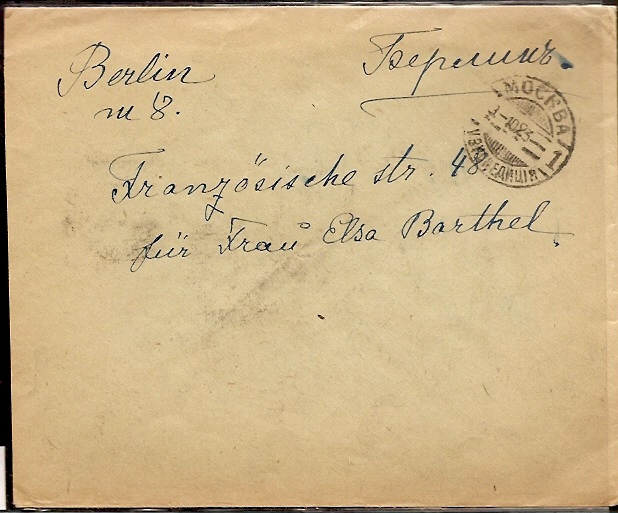 Berlin
Берлинъ.
m 8.
Französische str. 48
für Frau Elsa Barthel
МОСКВА
-10 23
1